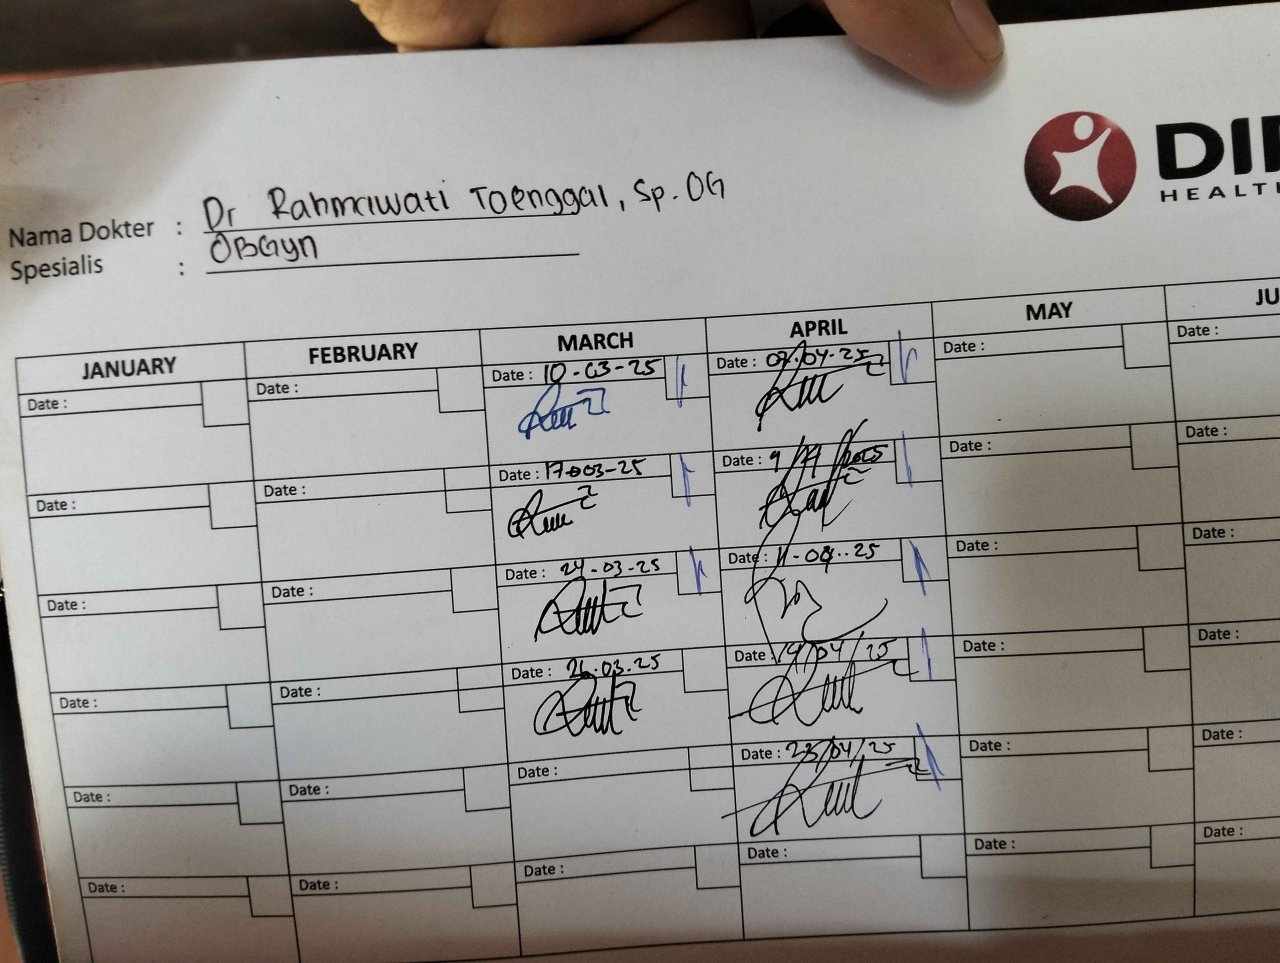 DI
HEALT
Nama Dokter : Dr Rahmawati Toenggal, Sp.OG
Spesialis : OBGyn
JANUARY FEBRUARY MARCH APRIL MAY JU
Date : Date : Date : 10-03-25 Date : 07-04-25 Date : Date :
Date : Date : Date : 17-03-25 Date : 9/ /2025 Date : Date :
Date : Date : Date : 24-03-25 Date : 11-04-25 Date : Date :
Date : Date : Date : 26.03.25 Date : 19/04/25 Date : Date :
Date : Date : Date : Date : 23/04/25 Date : Date :
Date : Date : Date : Date : Date : Date :